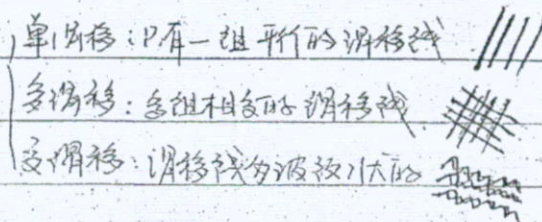 单滑移：只有一组平行的滑移线
多滑移：多组相交的滑移线
交滑移：滑移线为波纹状的